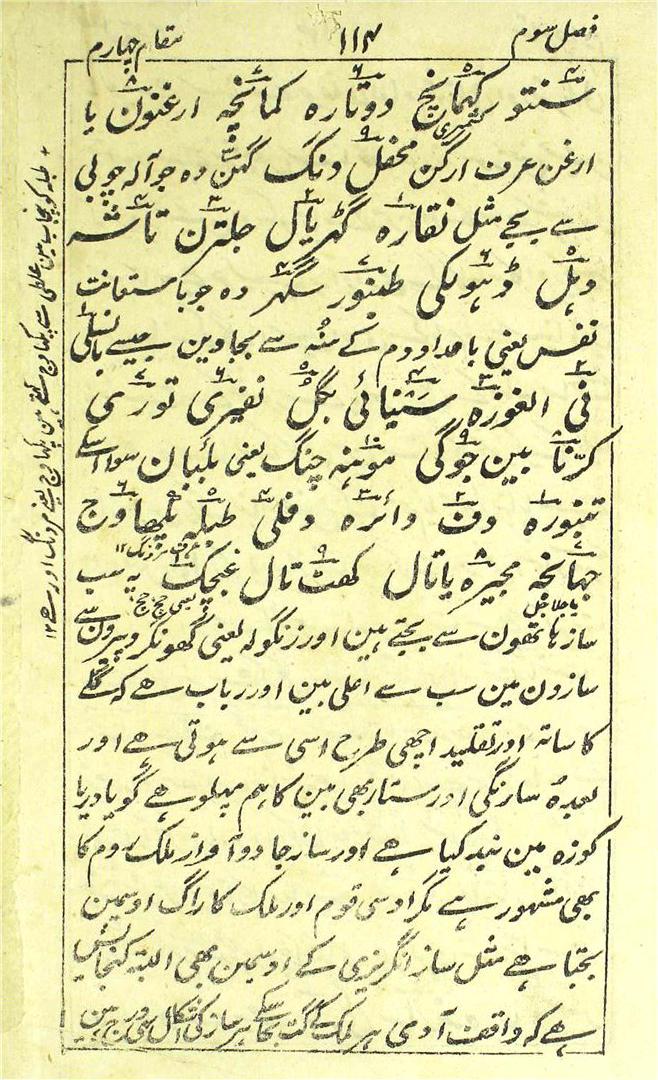 فصل سوم ۱۱۴ مقام چہارم
سنتو کمانچ دوتارہ کمانچہ ارغنون یا
ارغن عرف ارگن محفل ونگ گہن دہ جو آلہ چوبی
سے بجے مثل نقارہ گہڑیال جلترن تاشہ
دہل ڈہولکی طنبور سگہر دہ جو باستعانت
نفس یعنی بامداد دم کے منہ سے بجاوین جیسے بانسلی
نی الغوزہ سنیائی بگل نفیری توری
کرنا بین جوگی موہنہ چنگ یعنی بلبان سوا اسکے
تنبورہ دف دائرہ دفلی طبلہ پکھاوج
عرف مردنگ ۱۲
جہانجہ مجیرہ یا تال کہٹ تال غچک یہ سب
یا جلاجل
ساز ہاتھون سے بجتے ہین اور زنگولہ یعنی گھونگرو پیرون سے
سازون مین سب سے اعلی بین اور رباب ہے کہ گلے
کا ساتہ اور تقلید اچھی طرح اسی سے ہوتی ہے اور
بعدہ سارنگی اور ستار بھی بین کا ہم پہلو ہے گویا دریا
کوزہ مین بند کیا ہے اور ساز جادو آواز ملک روم کا
بھی مشہور ہے مگر اوسی قوم اور ملک کا راگ اوسمین
بجتا ہے مثل ساز انگریزی کے اوسمین بھی البتہ گنجائش
ہے کہ واقف آدمی ہر ملک کے گت بجا سکے ہر ساز کی اشکال اسی درج ہین
طبلہ کو پنجاب مین غلطی سے پکھاوج کہتے ہین پکھاوج یعنے مردنگ اور ہے ۱۲